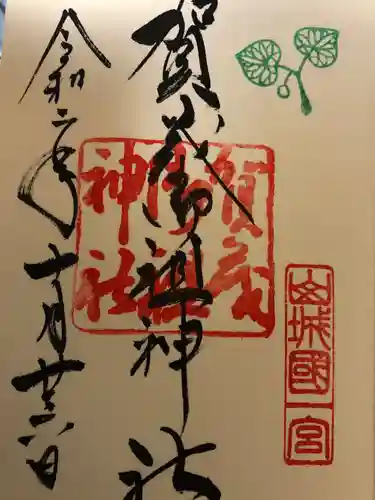 山城國一宮
賀茂御祖神社
賀茂御祖神社
令和二年十月廿六日